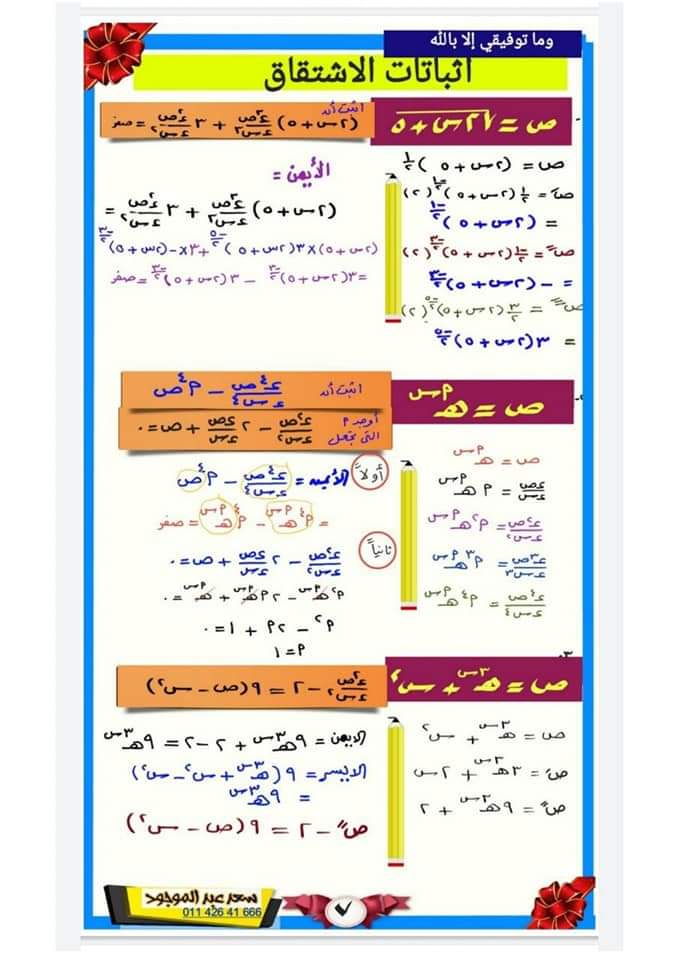 وما توفيقي إلا بالله
اثباتات الاشتقاق
ص = √(٢س + ٥)
اثبت أن
(٢س + ٥) ء٣ص/ءس٣ + ٣ ء٢ص/ءس٢ = صفر
ص = (٢س + ٥)^(١/٢)
صَ = ١/٢ (٢س + ٥)^(-١/٢) (٢)
= (٢س + ٥)^(-١/٢)
صً = -١/٢ (٢س + ٥)^(-٣/٢) (٢)
= - (٢س + ٥)^(-٣/٢)
= ٣/٢ (٢س + ٥)^(-٥/٢) (٢)
= ٣(٢س + ٥)^(-٥/٢)
الأيمن =
(٢س + ٥) ء٣ص/ءس٣ + ٣ ء٢ص/ءس٢ =
(٢س + ٥) × ٣(٢س + ٥)^(-٥/٢) + ٣ × -(٢س + ٥)^(-٣/٢)
= ٣(٢س + ٥)^(-٣/٢) - ٣(٢س + ٥)^(-٣/٢) = صفر
ص = هـ^(٩س)
اثبت أن ء٤ص/ءس٤ - ٩^٤ ص
أوجد ٩ التى تجعل
ء٢ص/ءس٢ - ٢ ءص/ءس + ص = ٠
ص = هـ^(٩س)
ءص/ءس = ٩ هـ^(٩س)
ء٢ص/ءس٢ = ٩^٢ هـ^(٩س)
ء٣ص/ءس٣ = ٩^٣ هـ^(٩س)
ء٤ص/ءس٤ = ٩^٤ هـ^(٩س)
أولاً
الأيمن = ء٤ص/ءس٤ - ٩^٤ ص
= ٩^٤ هـ^(٩س) - ٩^٤ هـ^(٩س) = صفر
ثانياً
ء٢ص/ءس٢ - ٢ ءص/ءس + ص = ٠
٩^٢ هـ^(٩س) - ٢٩ هـ^(٩س) + هـ^(٩س) = ٠
٩^٢ - ٢٩ + ١ = ٠
٩ = ١
٣.
ص = هـ^(٣س) + س^٢
ء٢ص/ءس٢ - ٢ = ٩(ص - س^٢)
ص = هـ^(٣س) + س^٢
صَ = ٣هـ^(٣س) + ٢س
صً = ٩هـ^(٣س) + ٢
الايمن = ٩هـ^(٣س) + ٢ - ٢ = ٩هـ^(٣س)
الايسر = ٩(هـ^(٣س) + س^٢ - س^٢)
= ٩هـ^(٣س)
صً - ٢ = ٩(ص - س^٢)
سعد عبد الموجود
011 426 41 666